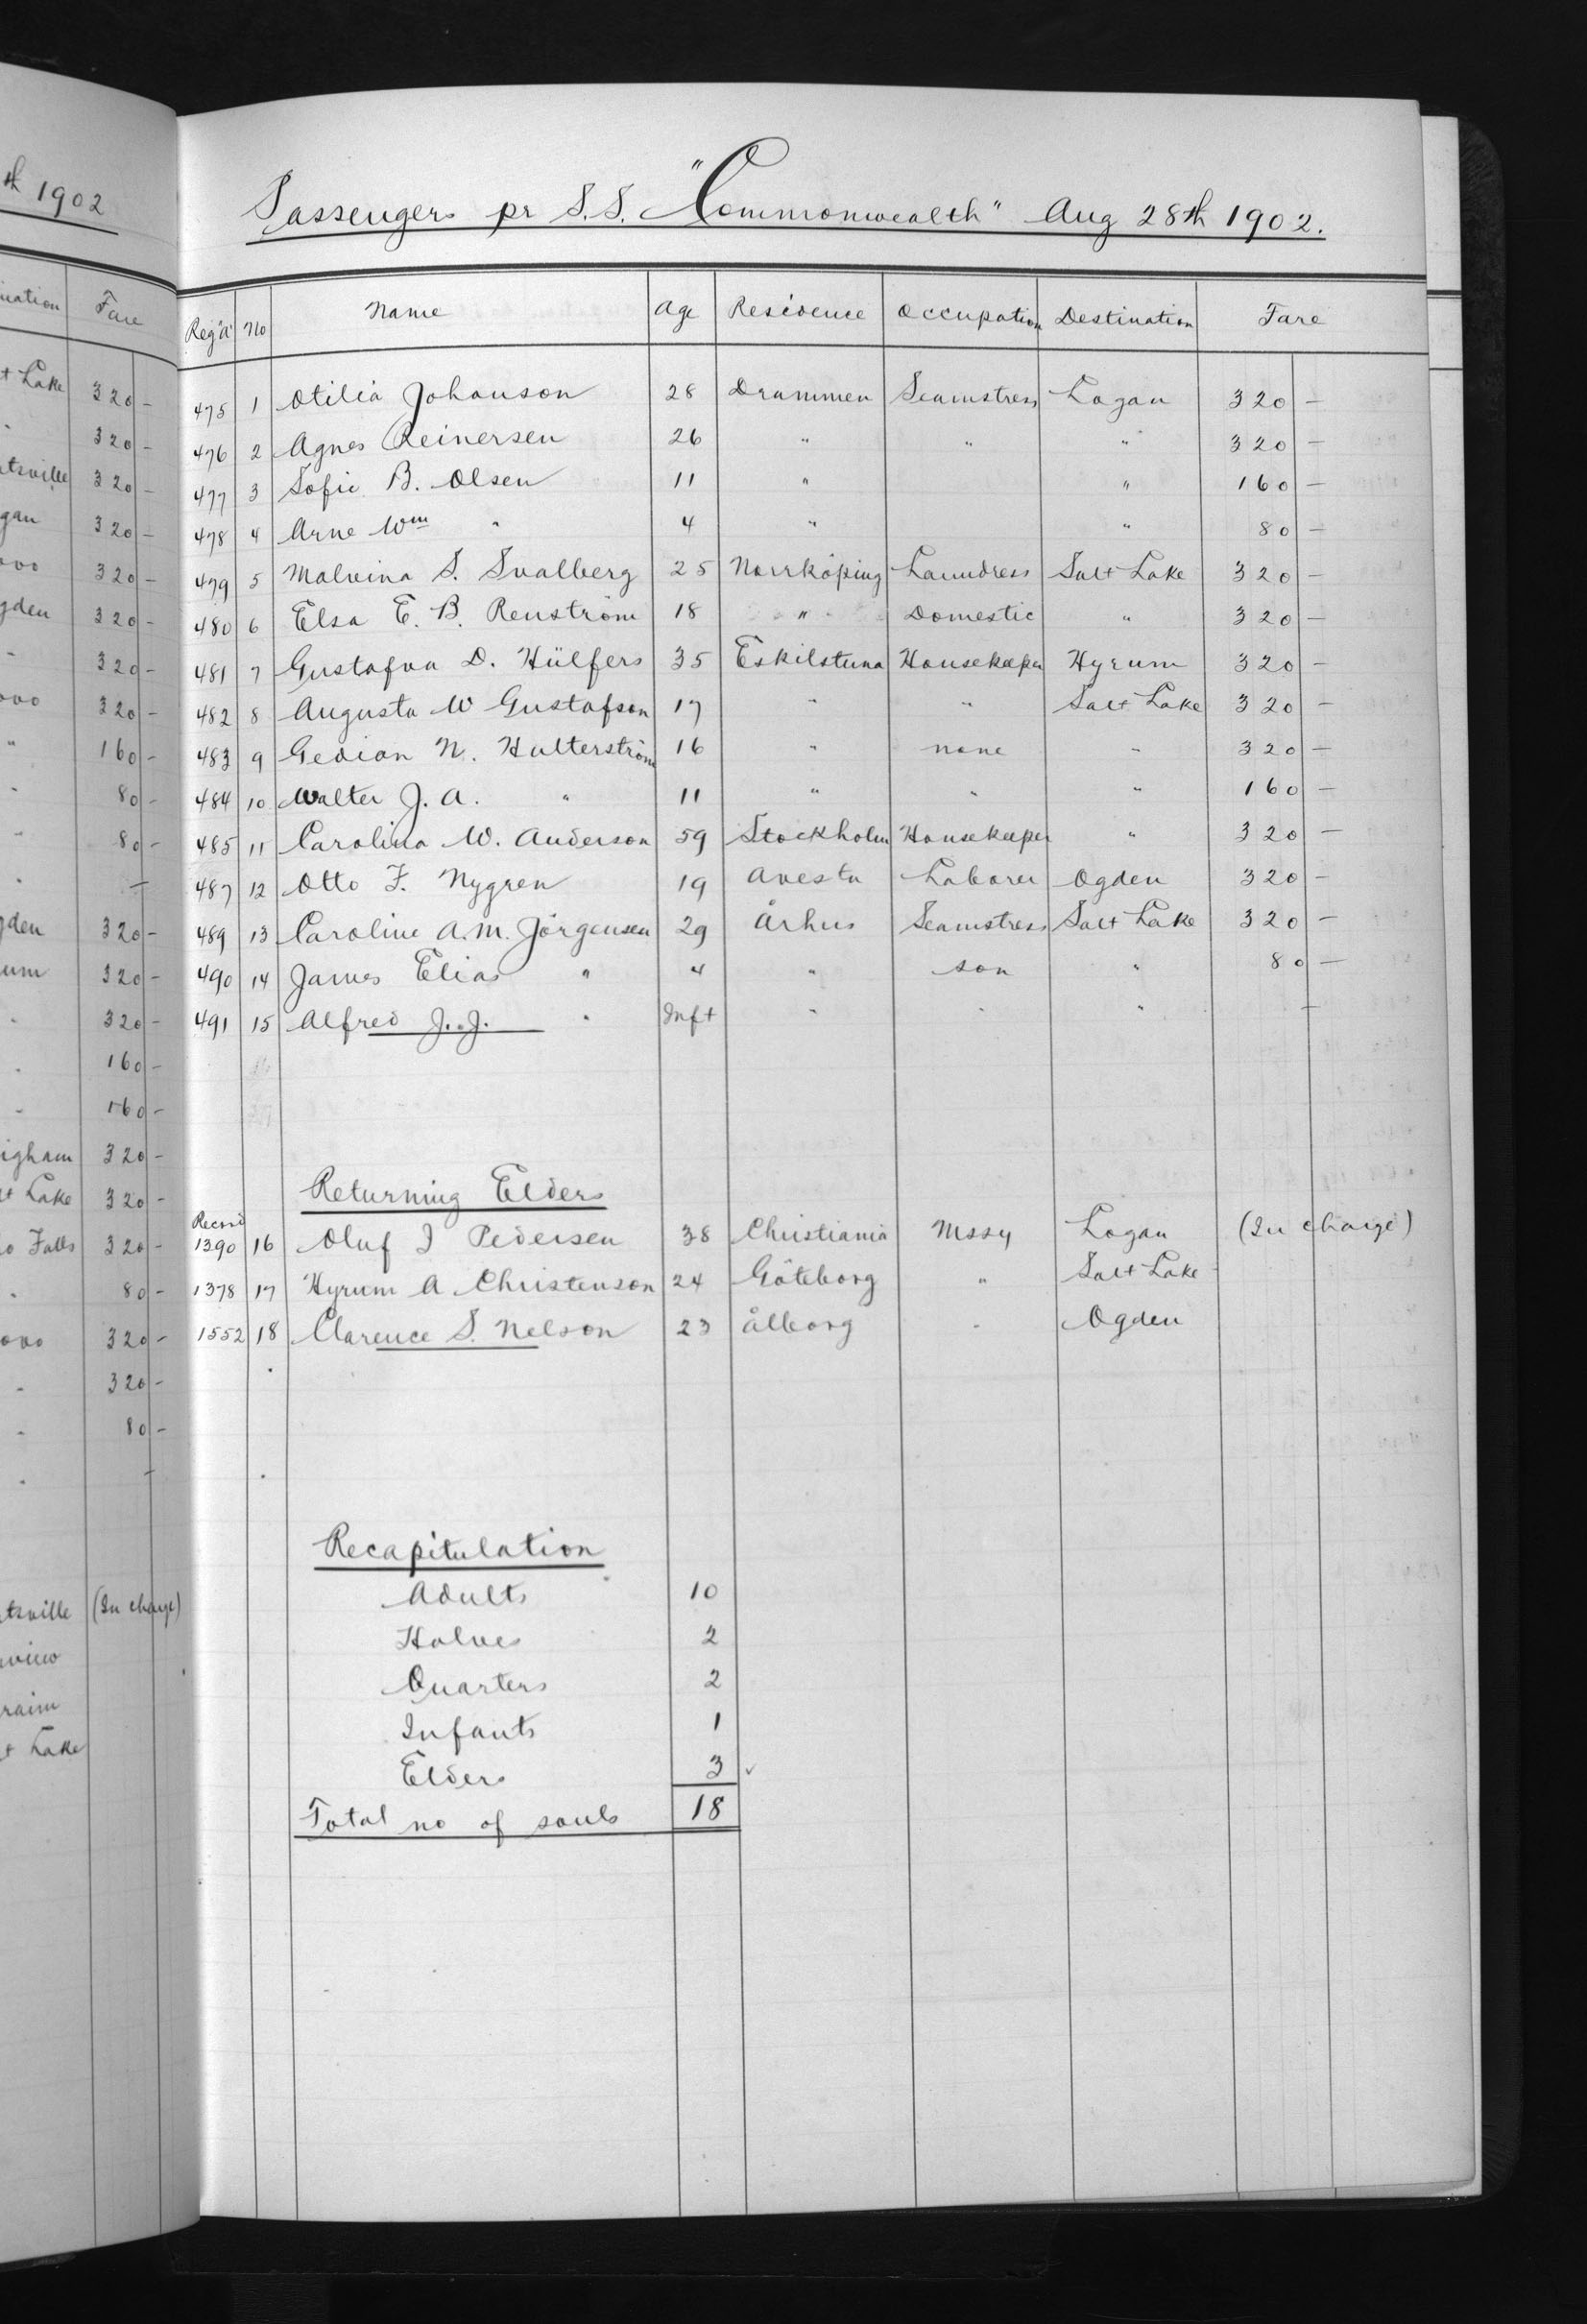 th 1902
ination Fare
t Lake 320 -
" 320 -
ntsville 320 -
gan 320 -
ovo 320 -
gden 320 -
" 320 -
ovo 320 -
" 160 -
" 80 -
" 80 -
" -
gden 320 -
um 320 -
" 320 -
" 160 -
" 160 -
igham 320 -
lt Lake 320 -
o Falls 320 -
" 80 -
ovo 320 -
" 320 -
" 80 -
" -
tsville (In charge)
raim
t Lake
Passengers pr S.S. "Commonwealth" Aug 28th 1902.
Reg'd No Name Age Residence Occupation Destination Fare
475 1 Otilia Johanson 28 Drammen Seamstress Logan 320 -
476 2 Agnes Reinersen 26 " " " 320 -
477 3 Sofie B. Olsen 11 " " 160 -
478 4 Arne Wm " 4 " " 80 -
479 5 Malvina S. Svalberg 25 Norrköping Laundress Salt Lake 320 -
480 6 Elsa E. B. Renström 18 " Domestic " 320 -
481 7 Gustafva D. Hülfers 35 Eskilstuna Housekeeper Hyrum 320 -
482 8 Augusta W Gustafson 17 " " Salt Lake 320 -
483 9 Gedion N. Hulterström 16 " none " 320 -
484 10 Walter J. A. " 11 " " " 160 -
485 11 Carolina W. Anderson 59 Stockholm Housekeeper " 320 -
487 12 Otto F. Nygren 19 Avesta Laborer Ogden 320 -
489 13 Caroline A. M. Jörgensen 29 Århus Seamstress Salt Lake 320 -
490 14 James Elias " 4 " son " 80 -
491 15 Alfred J. J. " Inft " " " -
Returning Elders
Record
1390 16 Oluf J Pedersen 38 Christiania Mssy Logan (In charge)
1378 17 Hyrum A Christenson 24 Göteborg " Salt Lake
1552 18 Clarence S. Nelson 23 Ålborg " Ogden
Recapitulation
Adults 10
Halves 2
Quarters 2
Infants 1
Elders 3 ✓
Total no of souls 18